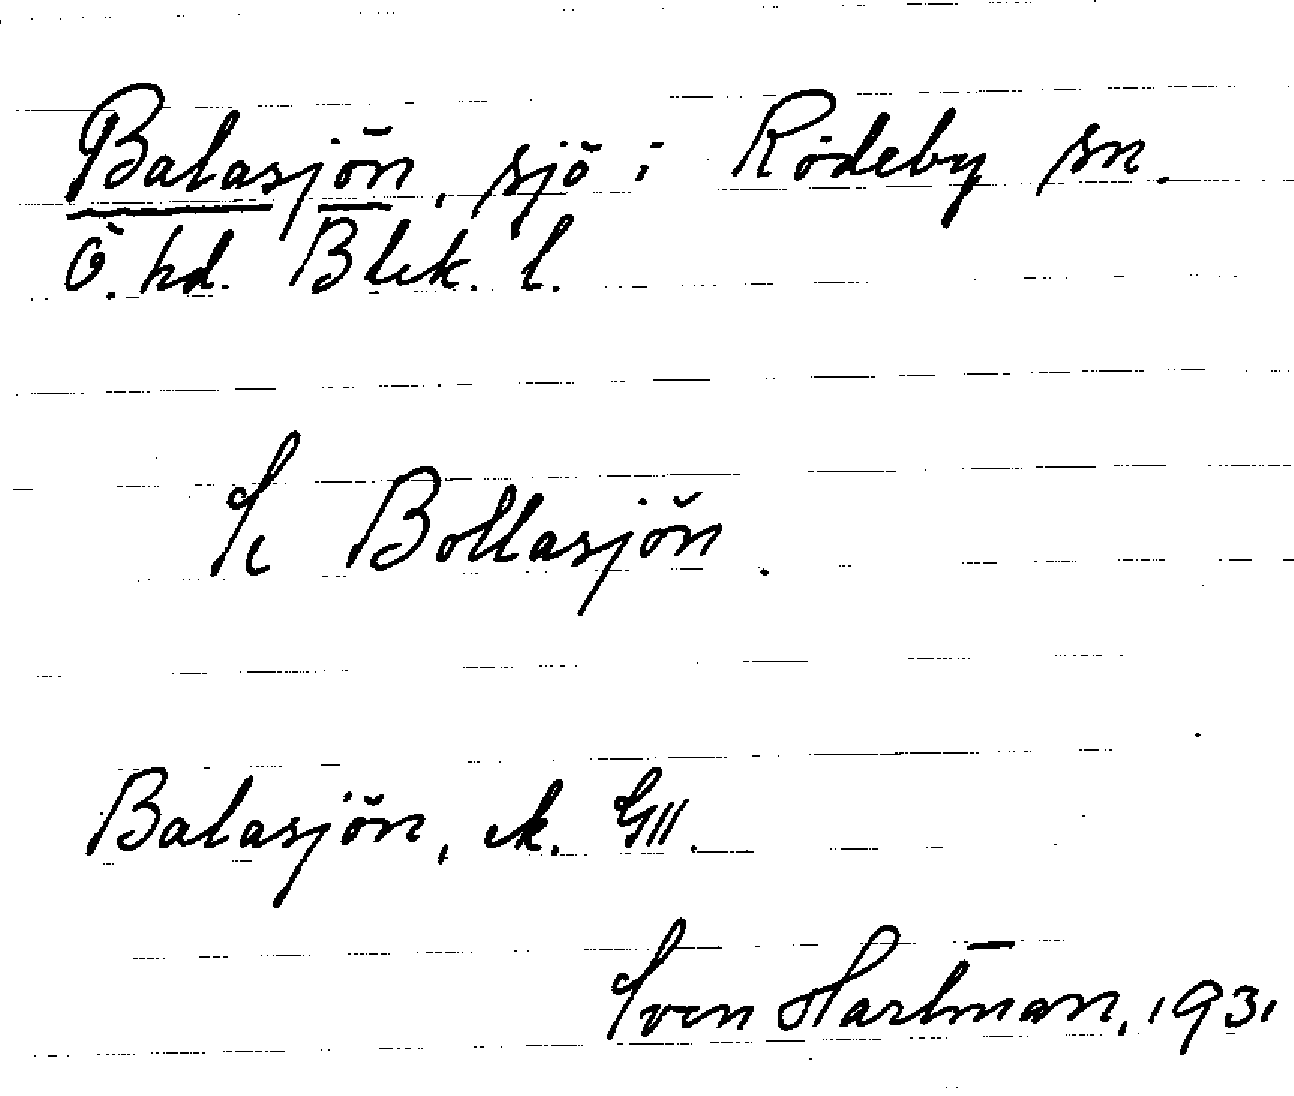 Balasjön, sjö i Rödeby sn.
Ö. hd. Blek. l.
Se Bollasjön.
Balasjön, ek. GII.
Sven Hartman, 1931